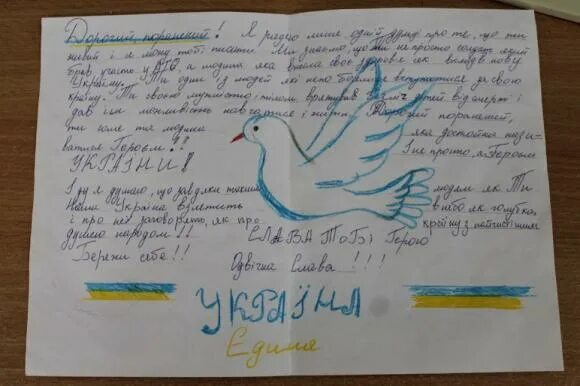 Дорогий, поранений! Я радію лише одній думці про те, що ти
живий і я можу тобі писати. Ми знаємо, що ти не просто солдат який
брав участь у АТО, а людина яка віддала своє здоров'я як вклад в нову
Україну. Ти один з людей які не бояться вступитися за свою
країну. Ти своєю мужністю і тілом врятував безліч дітей від смерті і
дав їм можливість навчатися і жити. Дорогий поранений,
ти саме та людина яка достойна нази-
ватися Героєм!!! І не просто, а Героєм
УКРАЇНИ!
І ду я думаю, що завдяки таким людям як Ти
Наша Україна взлетить в небо як голубка,
і про неї заговорять, як про країну з найчистішим
душею народом!! СЛАВА ТоБі Герою
Бережи себе!! Одвічна Слава!!!
УКРАЇНА
Єдина